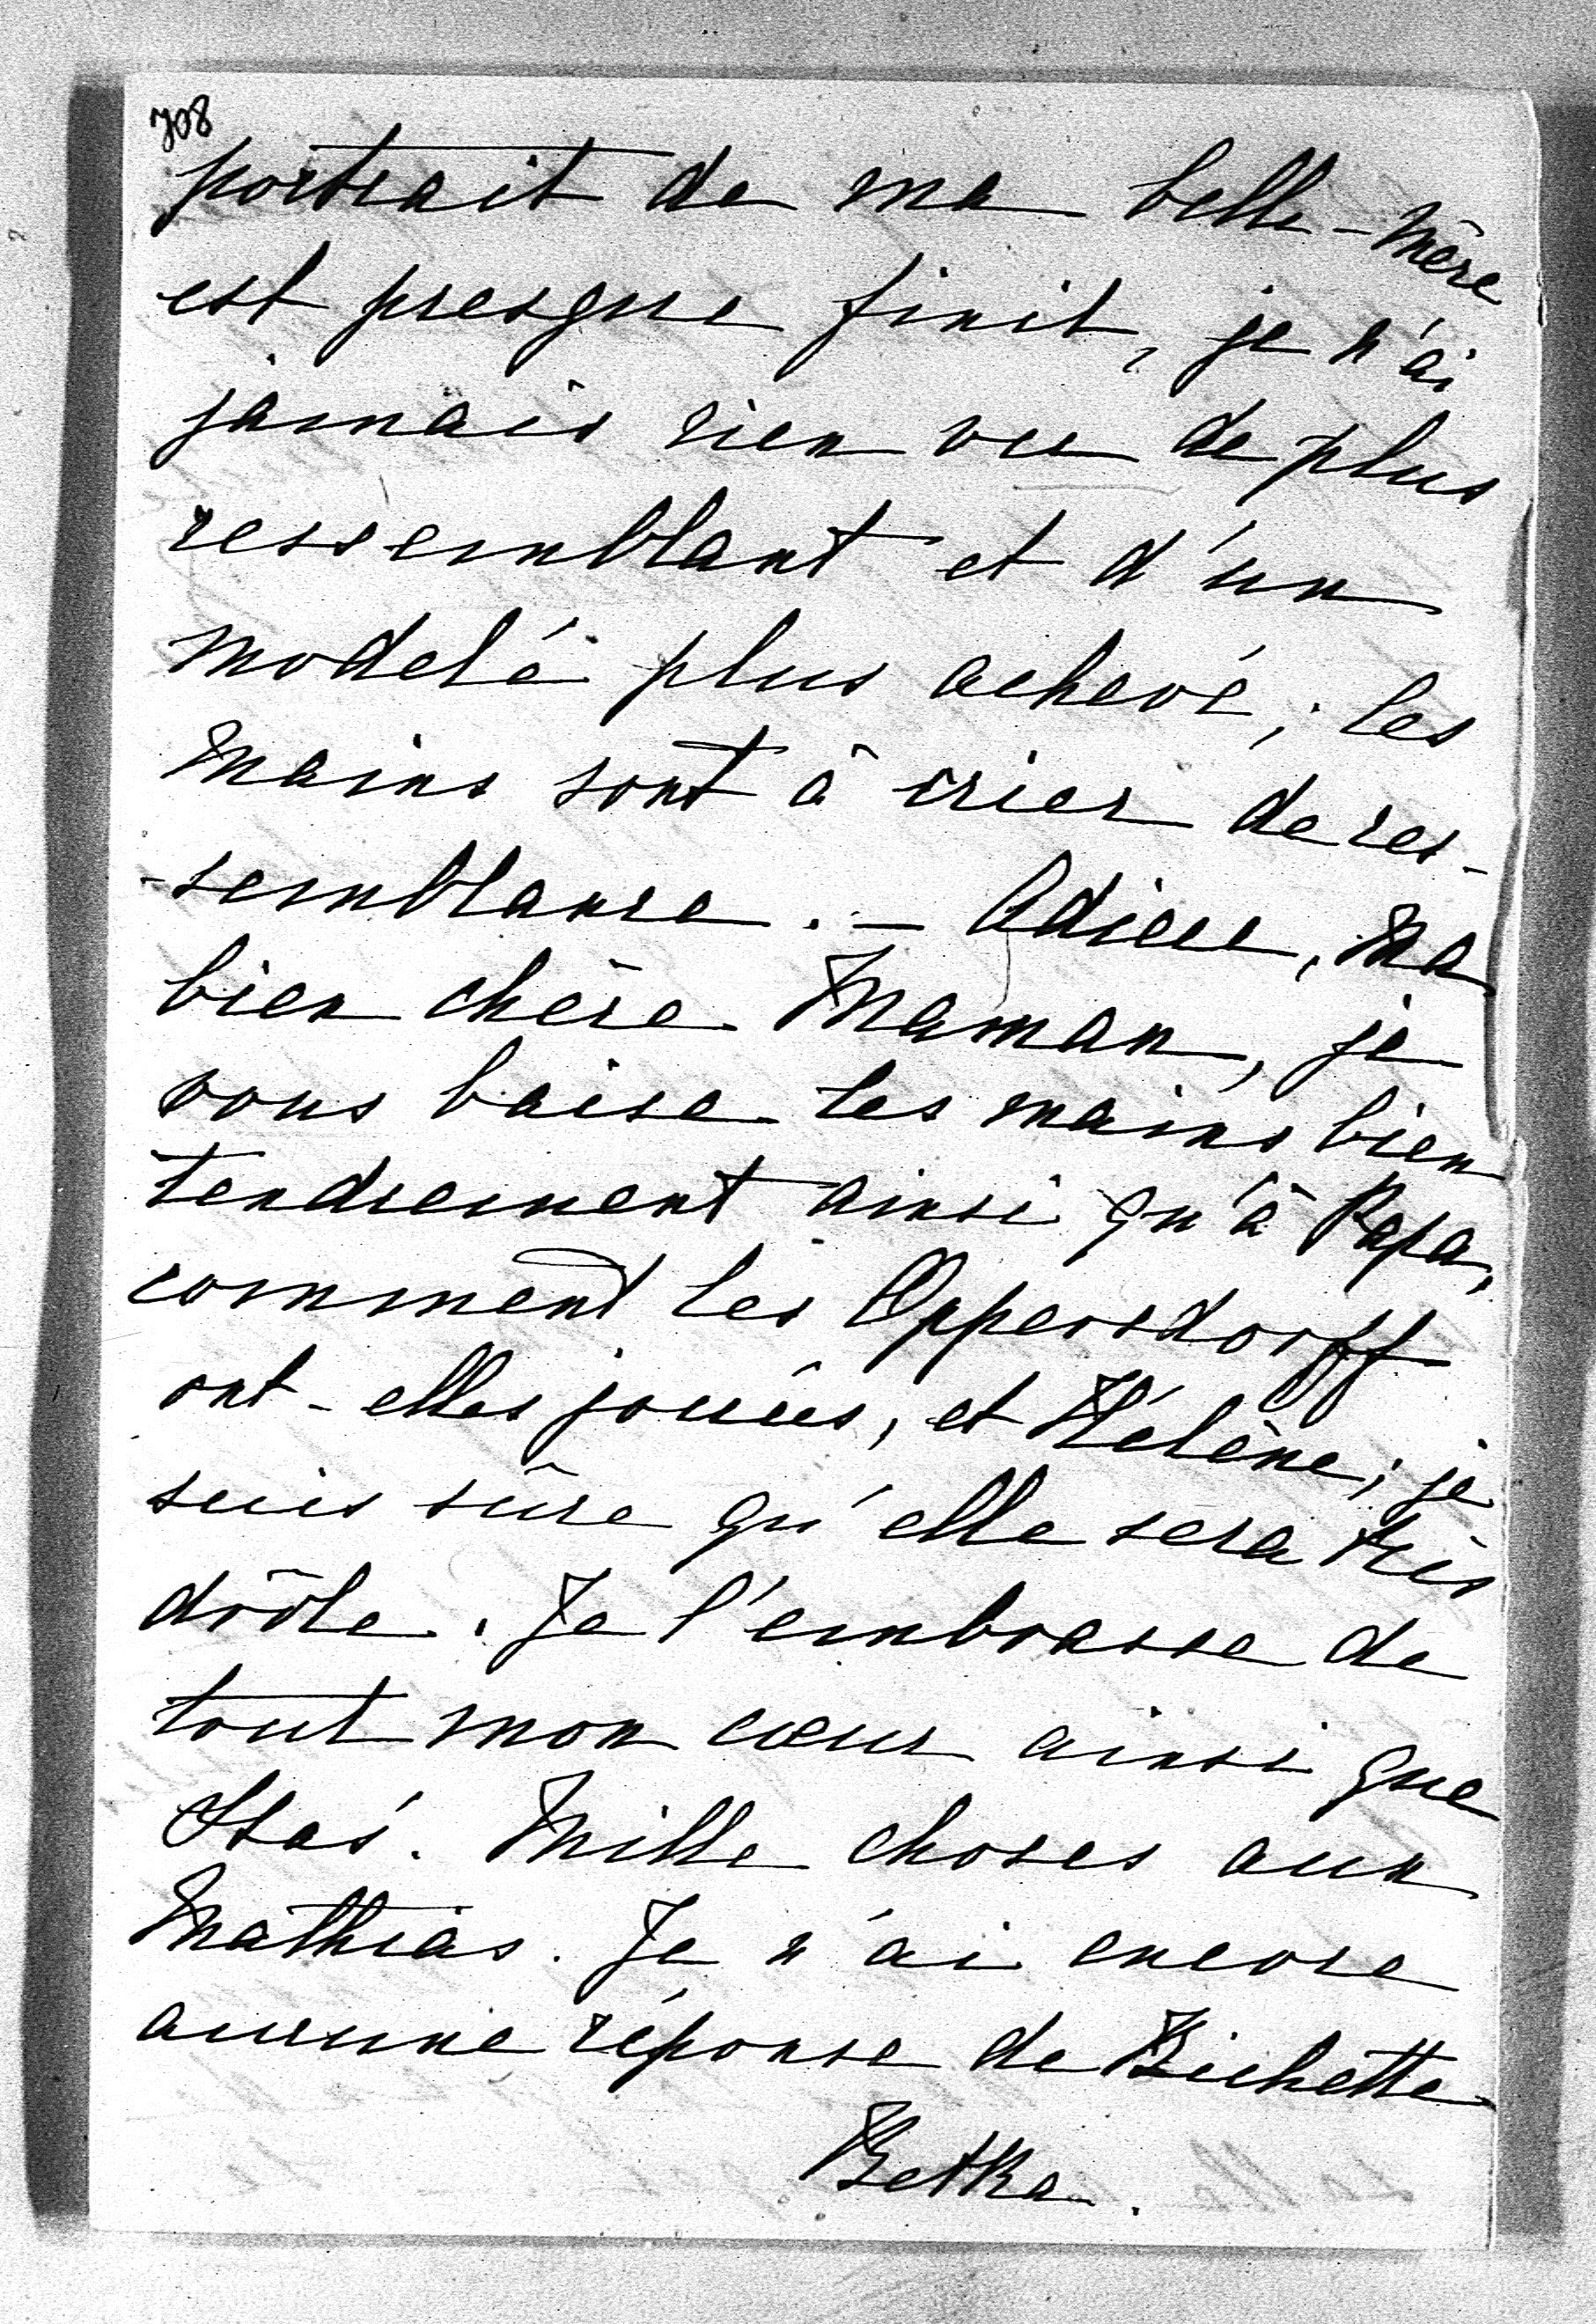 708
portrait de ma belle-mère
est presque finit, je n'ai
jamais rien vu de plus
ressemblant et d'un
modelé plus achevé; les
mains sont à crier de res-
-semblance. — Adieu, ma
bien chère Maman, je
vous baise les mains bien
tendrement ainsi qu'à Papa,
comment les Oppersdorff
ont-elles jouées, et Hélène; je
suis sûre qu'elle sera très
drôle. Je l'embrasse de
tout mon cœur ainsi que
Staś. Mille choses aux
Mathias. Je n'ai encore
aucune réponse de Bichette
Betka.